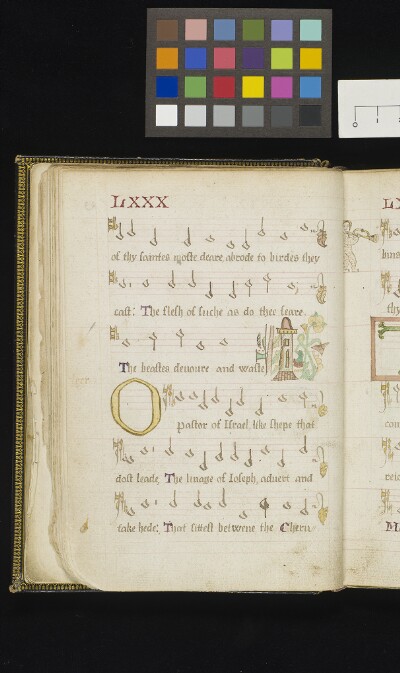 LXXX
of thy saintes moste deare abrode to birdes they
cast: The flesh of suche as do thee feare
The beastes devoure and waste
O
pastor of Israel, like shepe that
dost leade, The linage of Ioseph, advert and
take hede: That sittest betwene the Cheru
LX
hims
thy
T
con
M